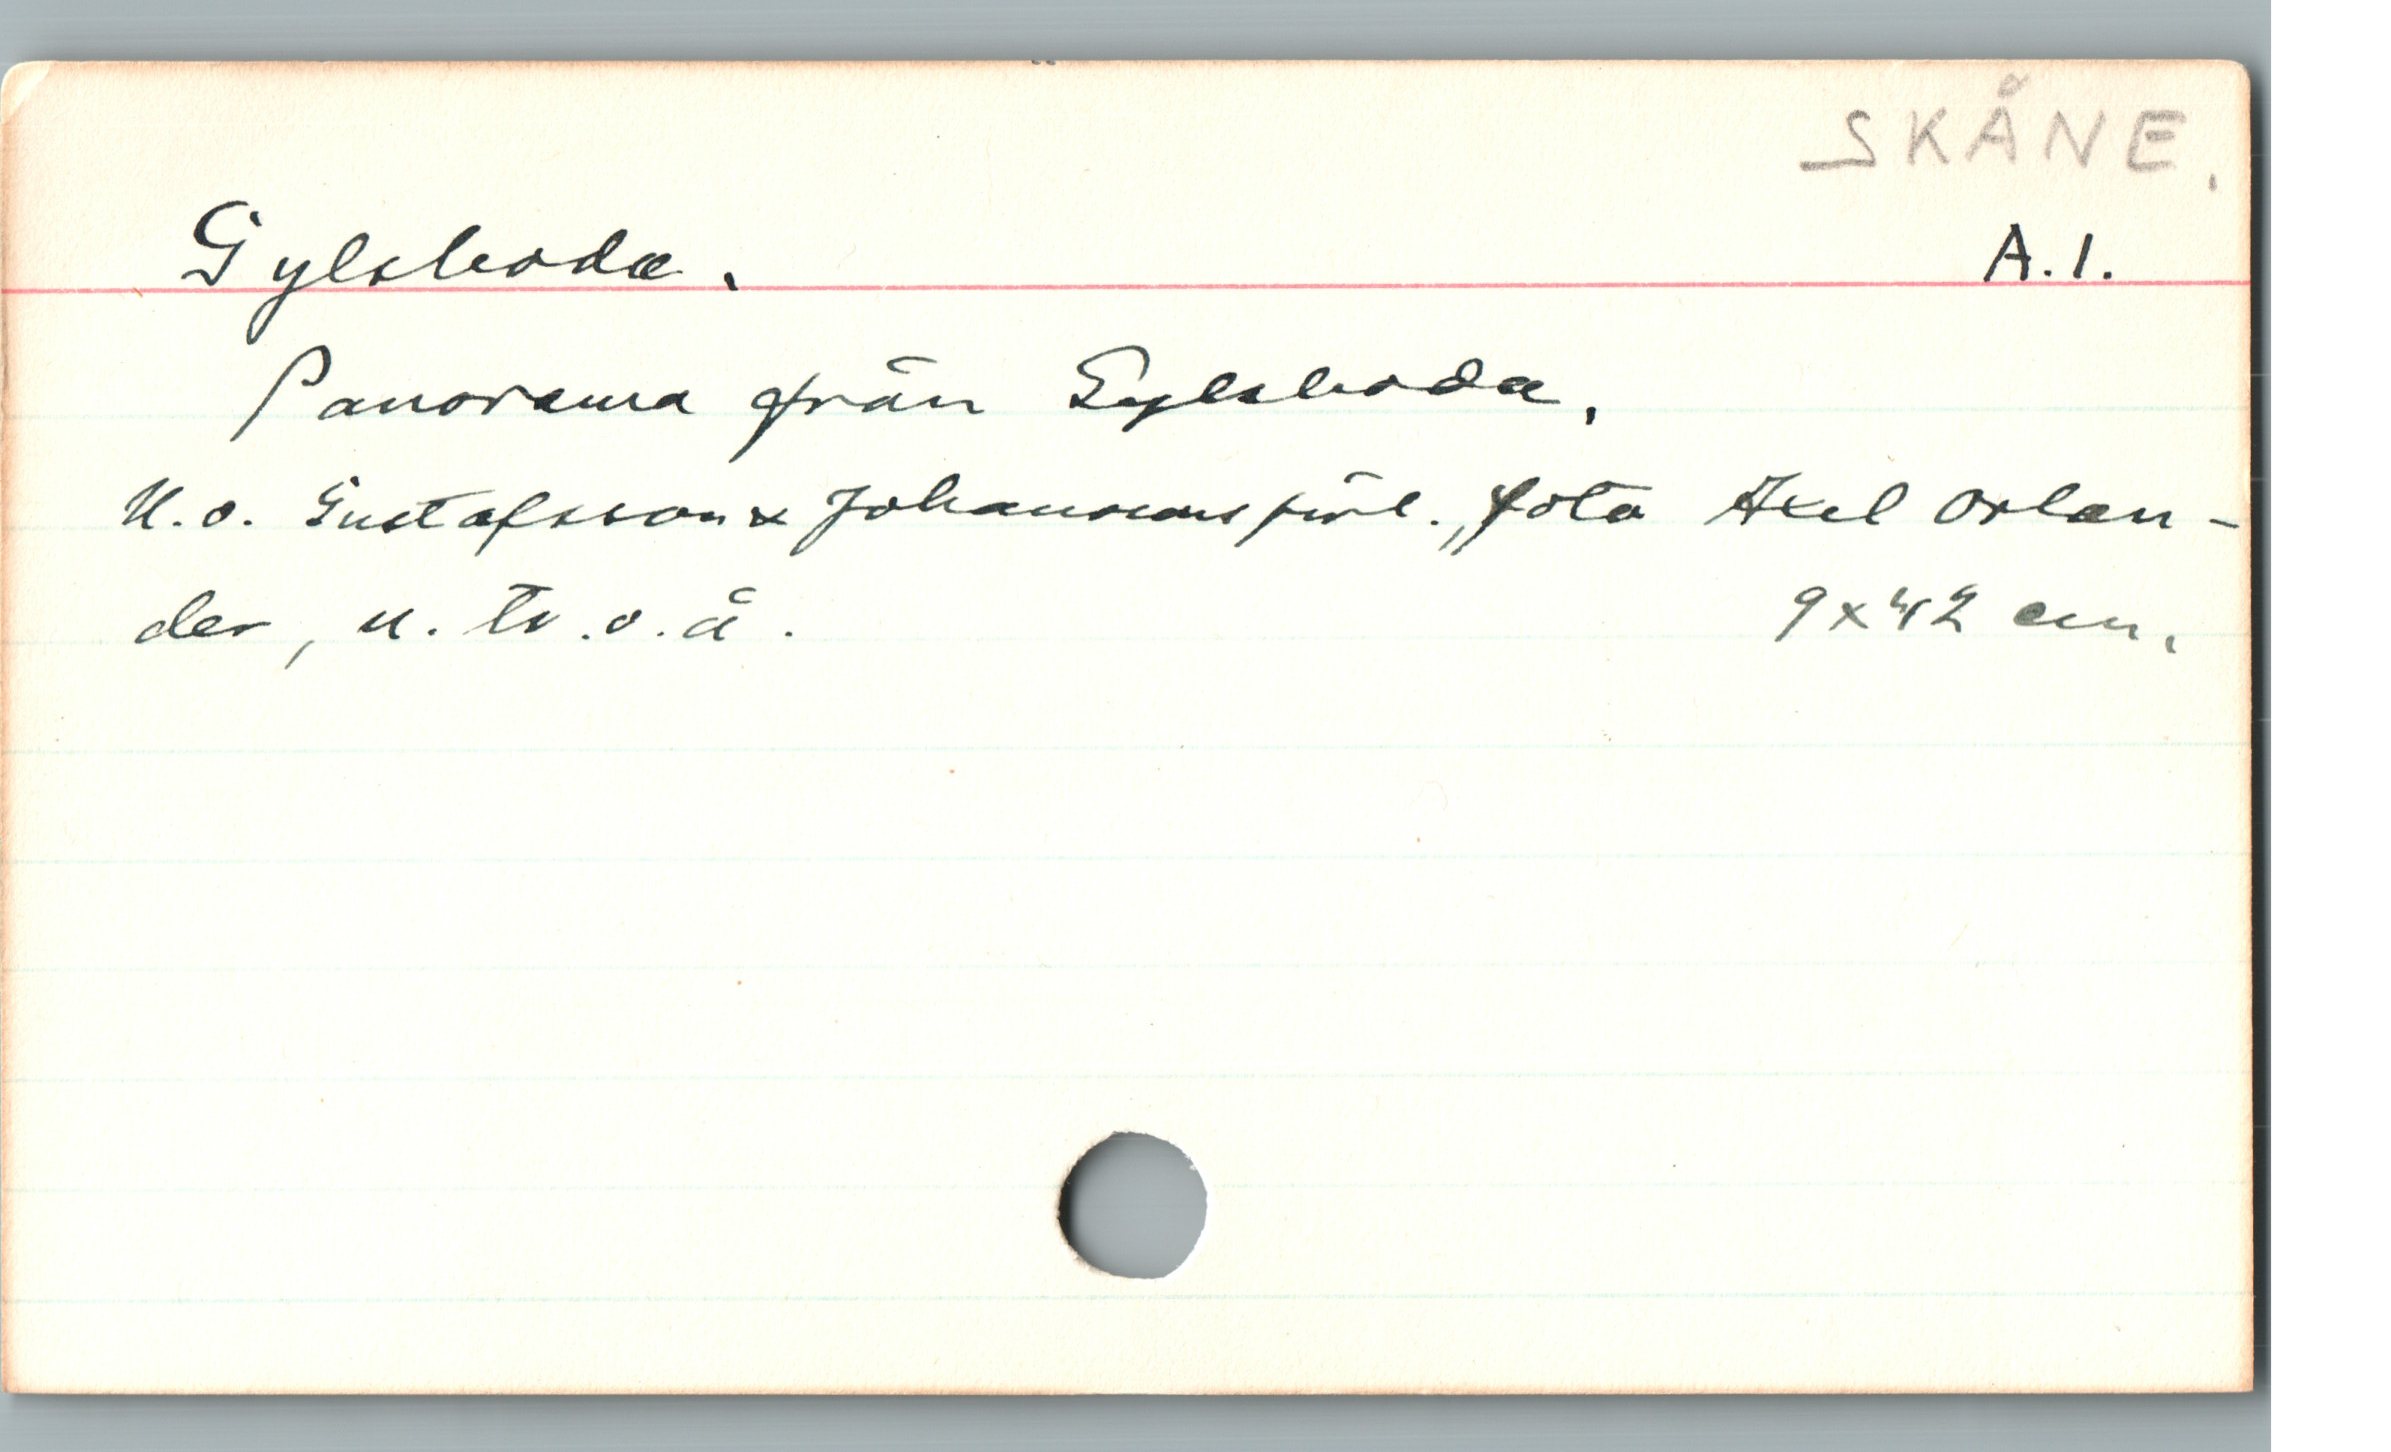 SKÅNE.
Gylsboda. A.1.
Panorama från Gylsboda.
U.o. Gustafsson & Johanssons förl., foto Axel Orlan-
der, u. tr. o. å. 9x42 cm.